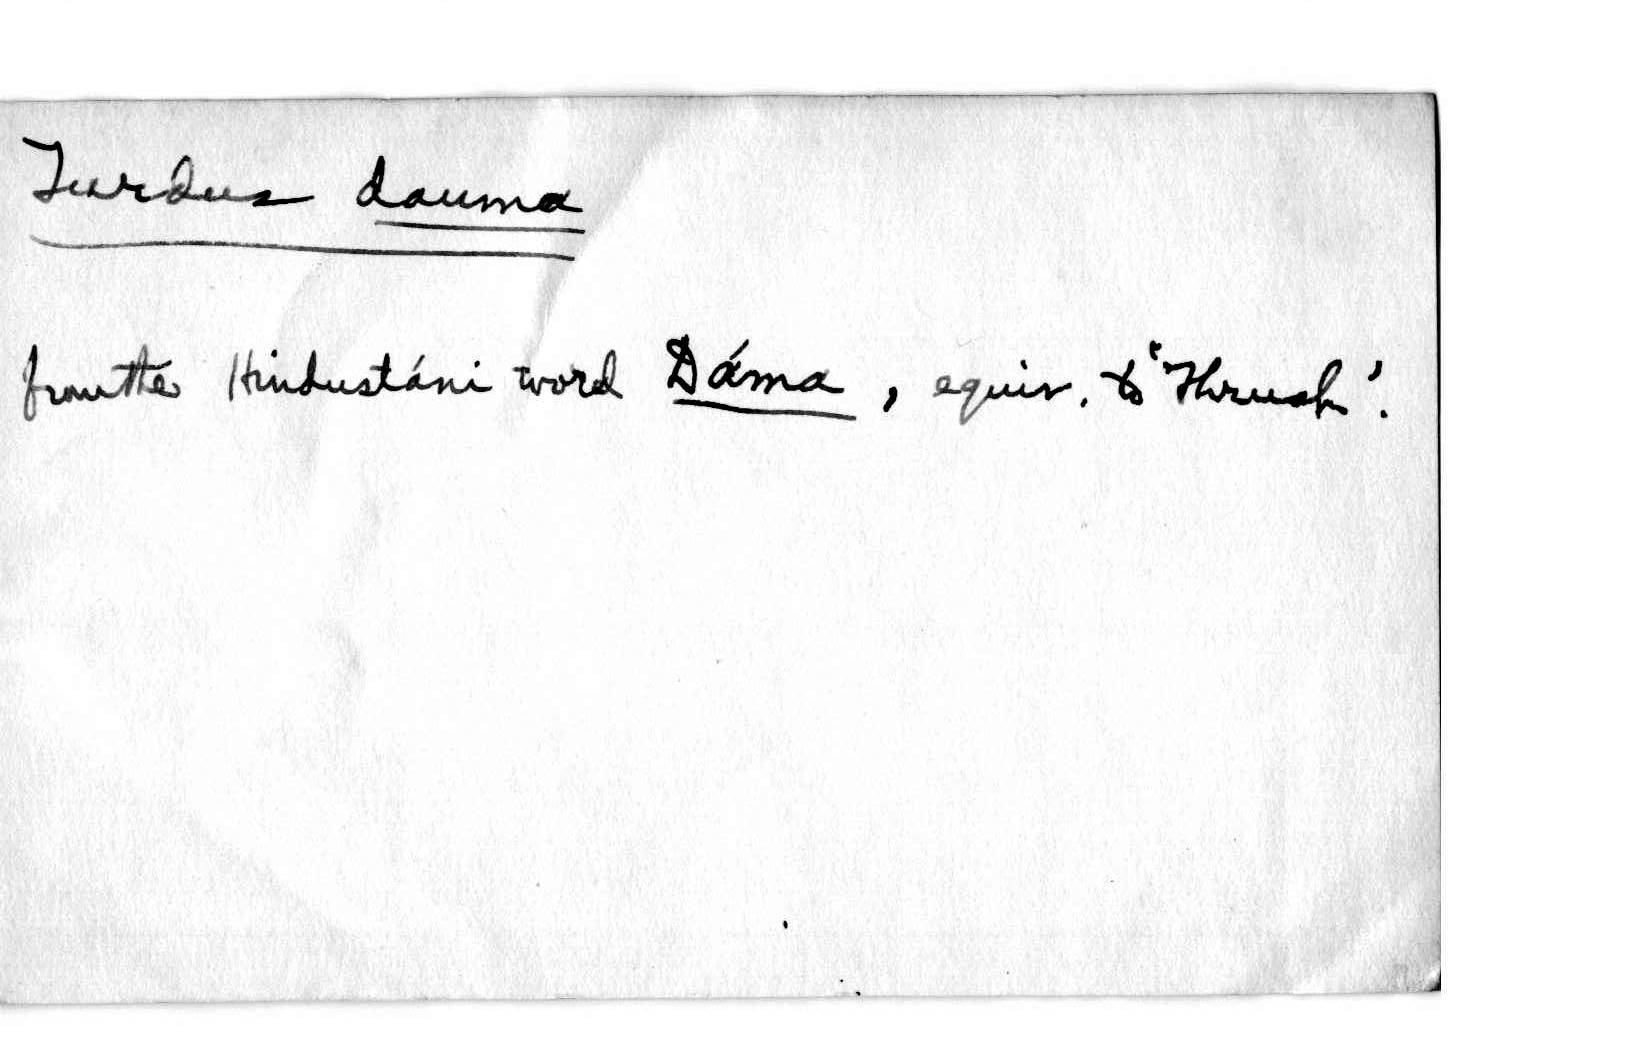 Turdus dauma
from the Hindustáni word Dáma, equiv. to 'Thrush'.